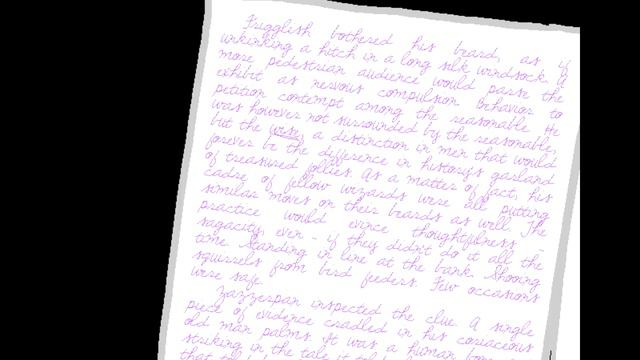 Frigglish bothered his beard, as if
unkinking a hitch in a long silk windsock. A
more pedestrian audience would parse the
exhibit as nervous compulsion. Behavior to
petition contempt among the reasonable. He
was however not surrounded by the reasonable,
but the wise, a distinction in men that would
forever be the difference in history's garland
of treasured follies. As a matter of fact, his
cadre of fellow wizards were all putting
similar moves on their beards as well. The
practice would evince thoughtfulness -
sagacity, even - if they didn't do it all the
time. Standing in line at the bank. Shooing
squirrels from bird feeders. Few occasions
were safe.
Zazzerpan inspected the clue. A single
piece of evidence cradled in his coriaceous
old man palms. It was a human bone,
striking in the tale it told